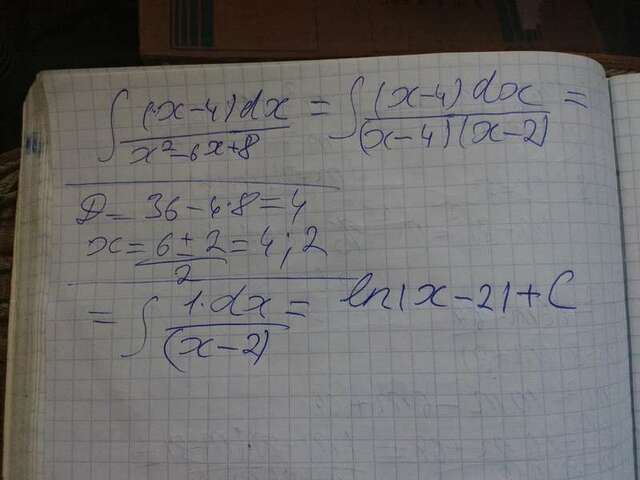 ∫ (x-4)dx / x²-6x+8 = ∫ (x-4)dx / (x-4)(x-2) =
D = 36-4·8=4
x = 6±2 / 2 = 4; 2
= ∫ 1·dx / (x-2) = ln|x-2|+C